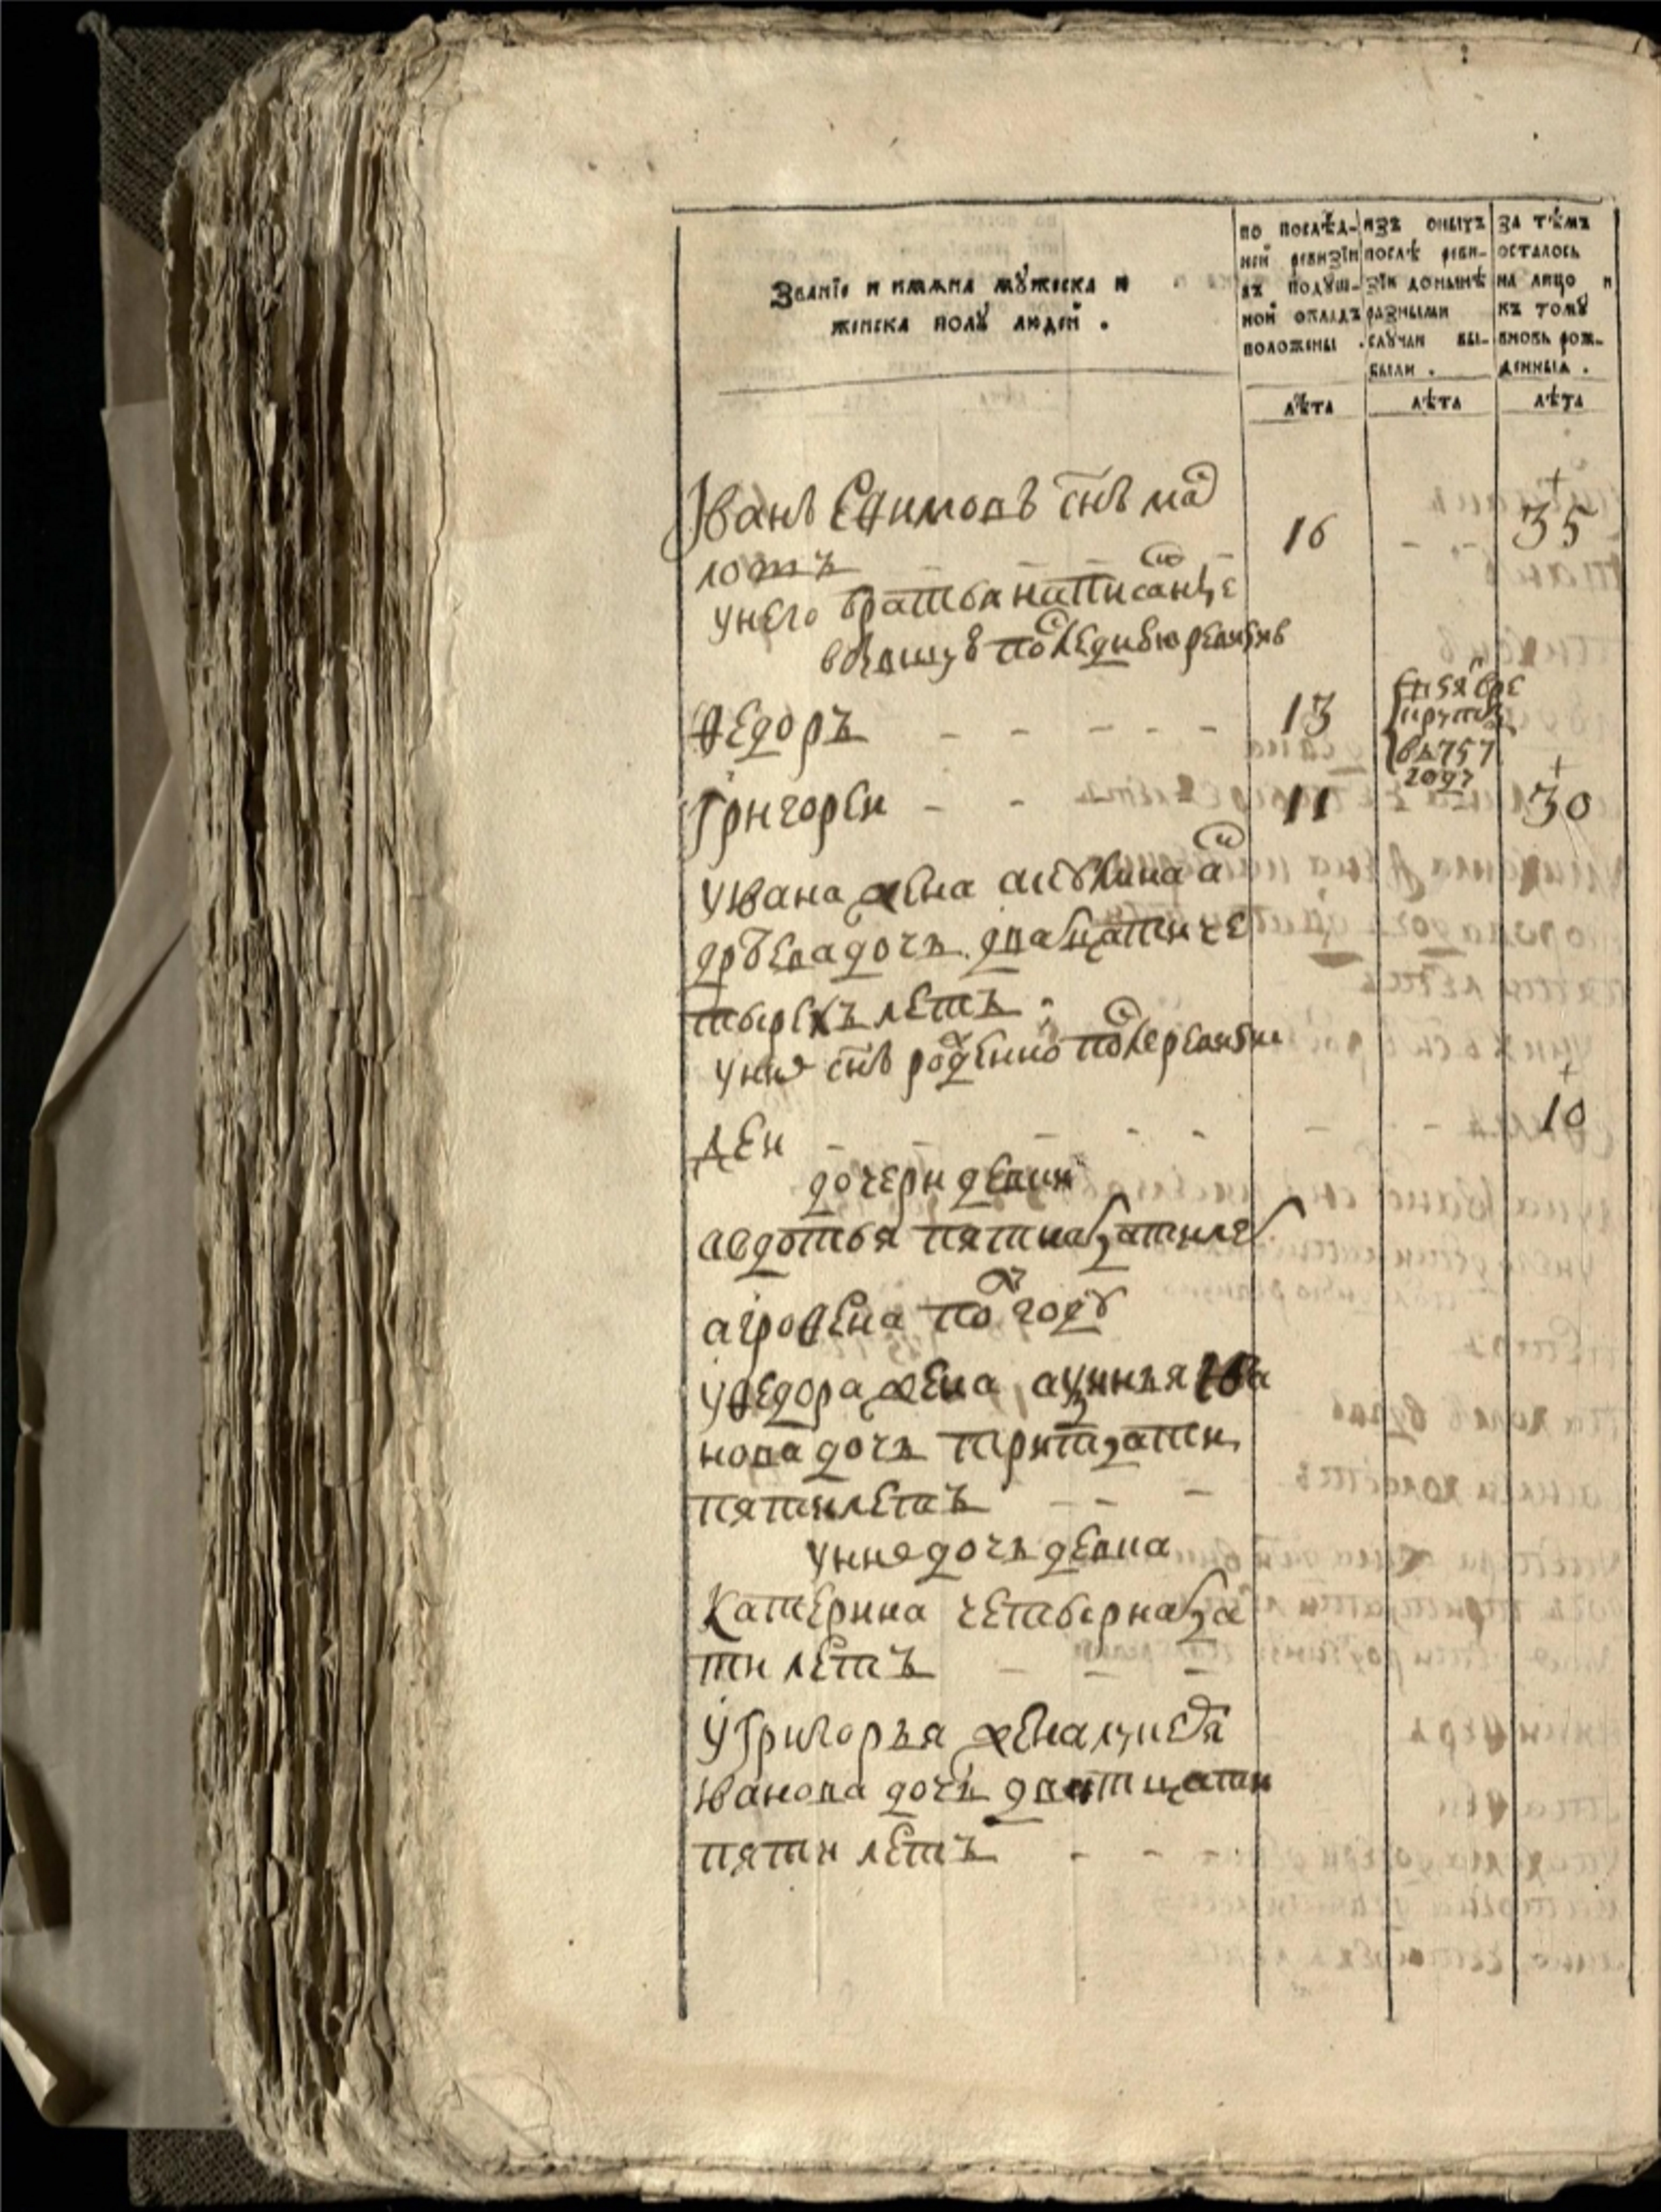 Званїе и имяна мꙋжеска и
женска полꙋ людей .
по послѣд-
ней ревизїи
въ подꙋш-
ной окладъ
положены .
изъ оныхъ
послѣ реви-
зїи донынѣ
разными
слꙋчаи вы-
были .
за тѣмъ
осталось
на лицо и
къ томꙋ
вновь рож-
денныя .
лѣта
лѣта
лѣта
Иванъ Ефимовъ снъ
16
35
унего братья написанне
Федоръ
13
въ 757
году
Григореи
11
30
уивана жена
дочь двадцати че
тырехъ летъ
унихъ снъ рожденно после ревизи
10
деи
дочери девки
авдотья пятнадцати лет
агрофена по году
уфедора жена
нова дочь тритцати
пяти летъ
унихъ дочь девка
Катерина четырнадца
ти летъ
уГригорья жена
Иванова дочь дватцати
пяти летъ